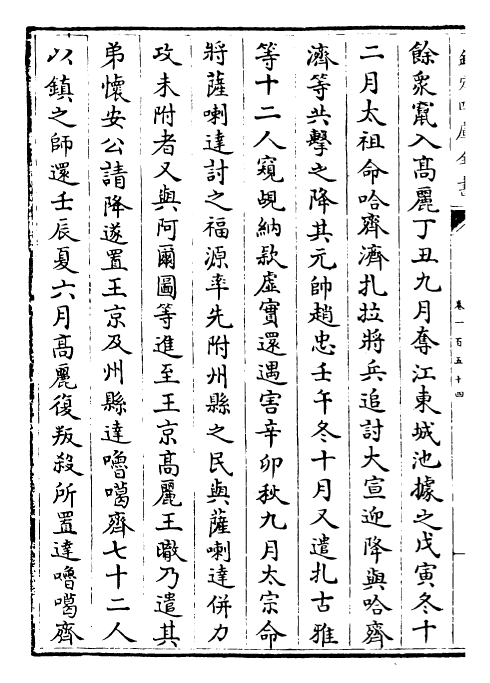 欽定四庫全書
卷一百五十四
餘衆竄入高麗丁丑九月奪江東城池據之戊寅冬十
二月太祖命哈齊濟扎拉將兵追討大宣迎降與哈齊
濟等共擊之降其元帥趙忠壬午冬十月又遣扎古雅
等十二人窺覘納款虛實還遇害辛卯秋九月太宗命
將薩喇達討之福源率先附州縣之民與薩喇達併力
攻未附者又與阿爾圖等進至王京高麗王㬚乃遣其
弟懷安公請降遂置王京及州縣達嚕噶齊七十二人
以鎮之師還壬辰夏六月高麗復叛殺所置達嚕噶齊